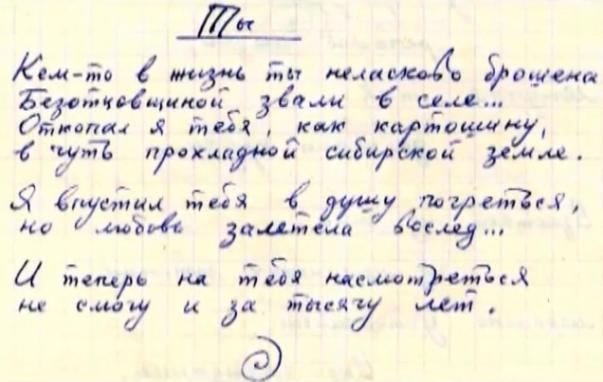 Ты
Кем-то в жизнь ты неласково брошена
Безотцовщиной звали в селе...
Откопал я тебя, как картошину,
в чуть прохладной сибирской земле.
Я впустил тебя в душу погреться,
но любовь залетела вослед...
И теперь на тебя насмотреться
не смогу и за тысячу лет.